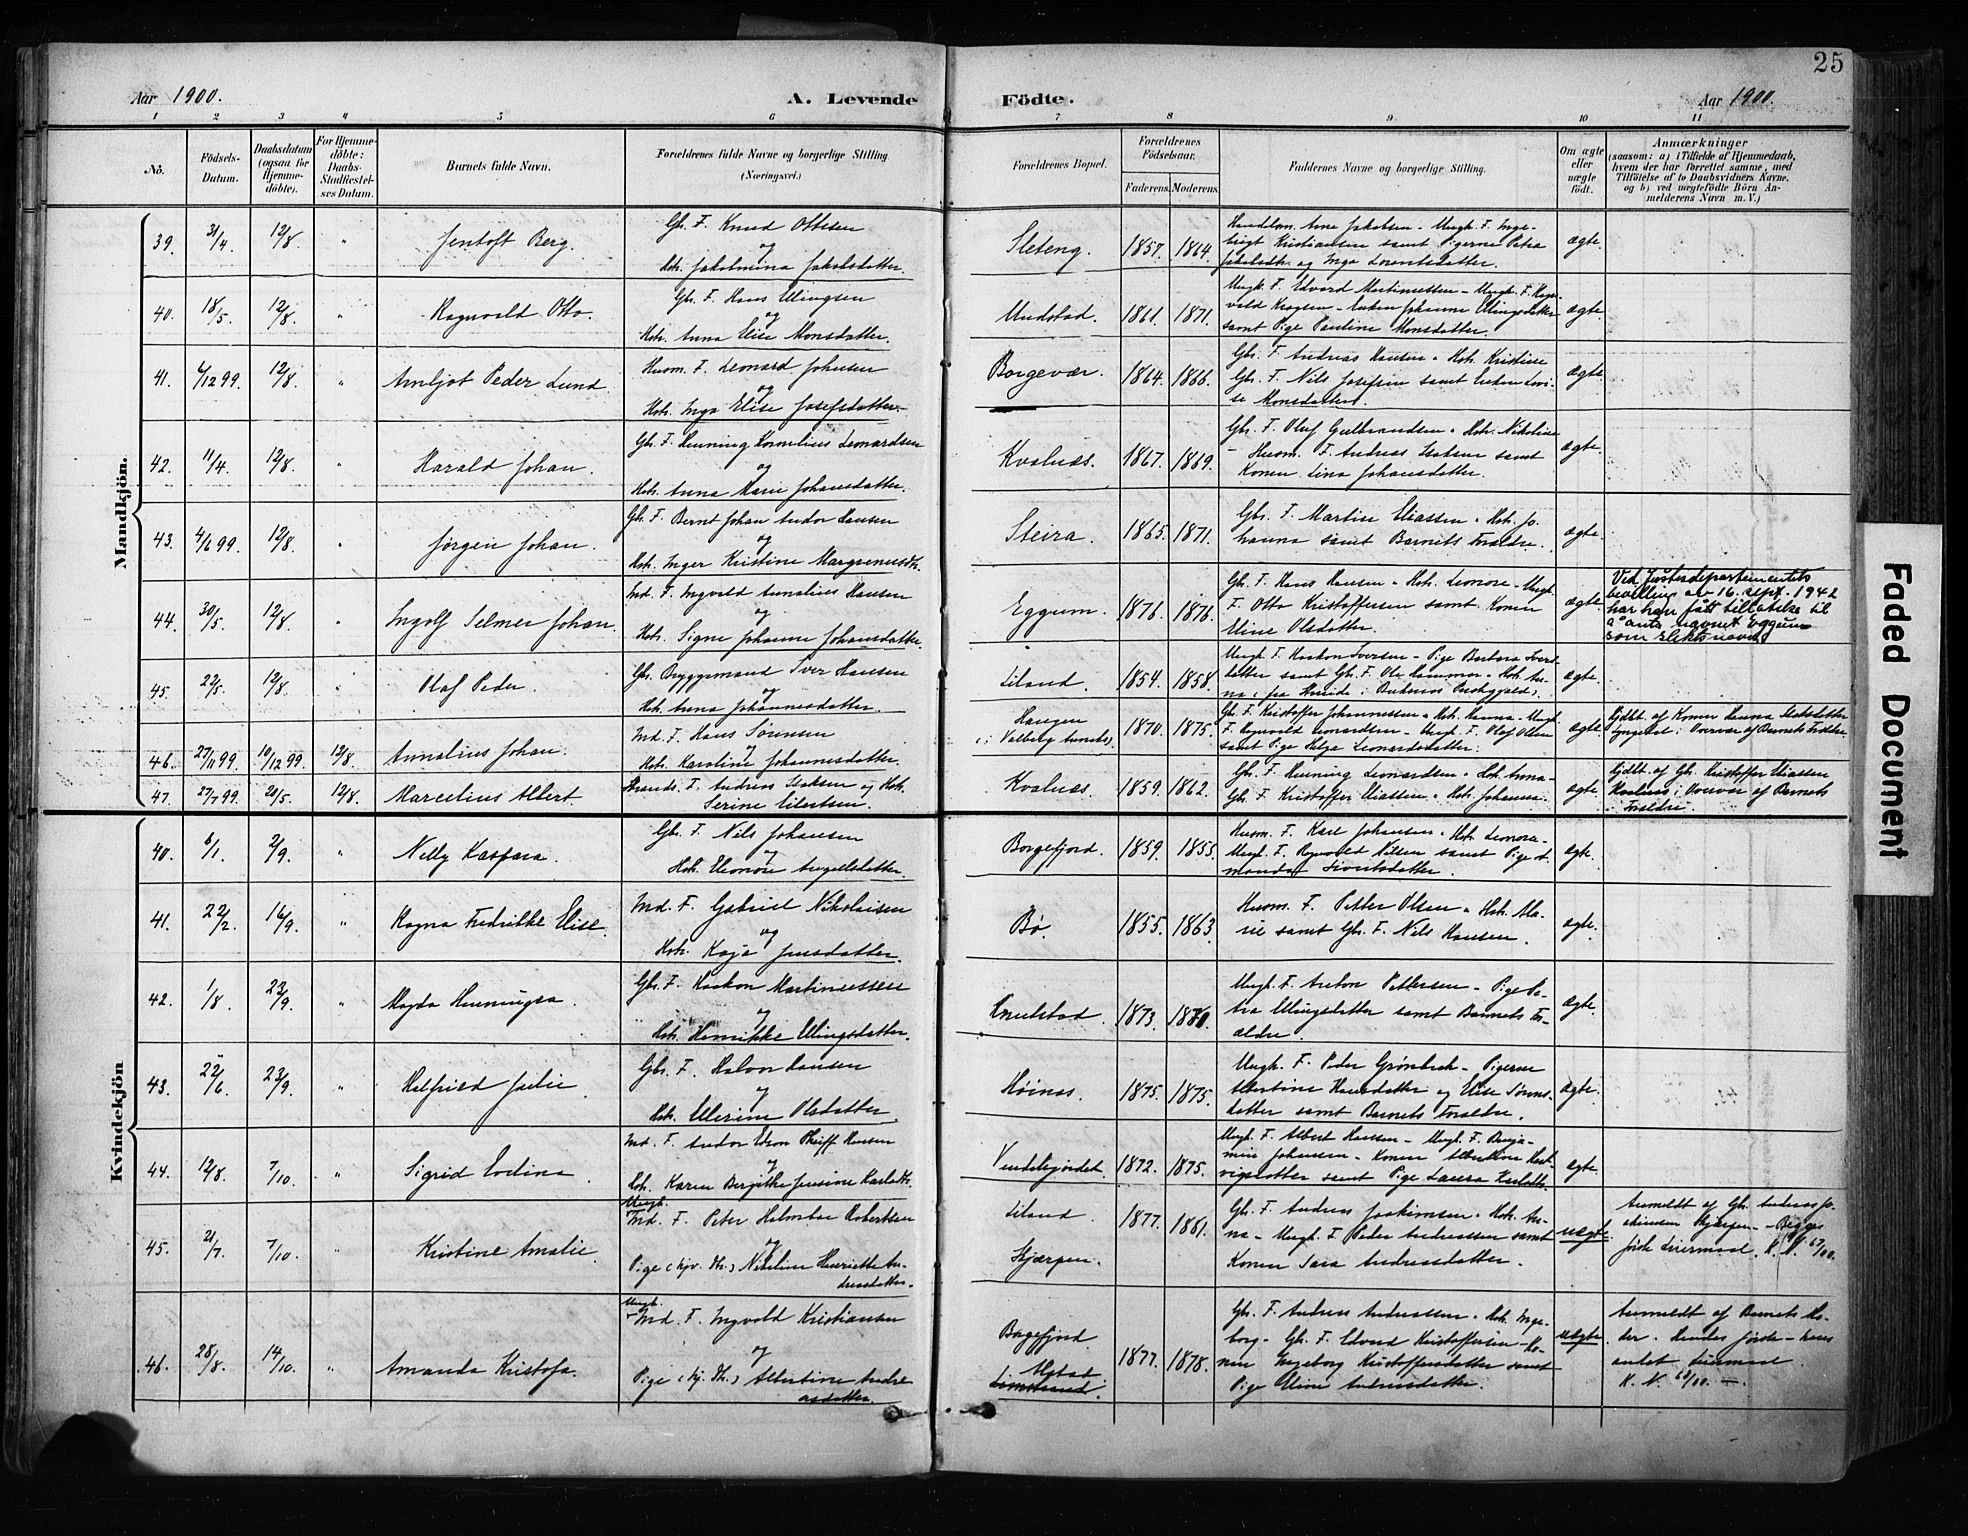 25
Aar 1900.
A. Levende
Födte.
Aar 1900.
1 2 3 4 5 6 7 8 9 10 11
No.
Födsels-
Datum.
Daabsdatum
(ogsaa for
Hjemme-
döbte).
For Hjemme-
döbte:
Daabs-
Stadfæstel-
ses Datum.
Barnets fulde Navn.
Forældrenes fulde Navne og borgerlige Stilling
(Næringsvei.)
Forældrenes Bopæl.
Forældrenes
Födselsaar.
Faderens. Moderens.
Faddernes Navne og borgerlige Stilling.
Om ægte
eller
uægte
födt.
Anmærkninger
(saasom: a) i Tilfælde af Hjemmedaab,
hvem der har forrettet samme, med
Tilföielse af to Daabsvidners Navne.
og b) ved uægtefödte Börn An-
melderens Navn m. V.)
Mandkjön.
39. 31/4 12/8 " Jentoft Berg.
Gbr. F. Knud Ottesen
og
Hstr. Jakobmina Jakobsdatter.
Sleteng. 1857. 1864.
Kristiansen samt Pigerne Petra
og Inga Lorentsdatter.
ægte.
40. 18/5 12/8 " Ragnvald Otto.
Gbr. F. Hans Ellingsen
og
Hstr. Anna Elise Monsdatter.
Undstad. 1861. 1871.
Ungk. F. Edvard Martinussen - Ungk. F. Rag-
vald Krogsen - Enken Johanna Ellingsdatter
samt Pige Pauline Monsdatter.
ægte.
41. 6/12 99. 12/8 " Arnljot Peder Lund
Husm. F. Leonard Johnsen
og
Hstr. Inga Elise Josefsdatter.
Borgevær. 1864. 1866.
Gbr. F. Andreas Hansen - Hstr. Kristine
Gbr. F. Nils Josefsen samt Enken Lovi-
se Monsdatter.
ægte.
42. 11/4 12/8 " Harald Johan.
Gbr. F. Henning Kornelius Leonardsen
og
Hstr. Anna Marie Johansdatter.
Kvalnæs. 1867. 1869.
Gbr. F. Oluf Gulbrandsen - Hstr. Nikoline
- Husm. F. Andreas Isaksen samt
Konen Lina Johansdatter.
ægte.
43. 4/6 99. 12/8 " Jørgen Johan.
Gbr. F. Bernt Johan Andor Hansen
og
Hstr. Inger Kristine
Steira. 1865. 1871.
Gbr. F. Martin Eliassen - Hstr. Jo-
hanna samt Barnets Forældre.
ægte.
44. 30/5 12/8 " Ingolf Selmer Johan.
Ind. F. Ingvald Annalius Hansen
og
Hstr. Signe Johanne Johansdatter.
Eggum. 1876. 1876.
Gbr. F. Hans Hansen - Hstr. Leonore - Ungk.
F. Otto Kristoffersen samt Konen
Eline Olsdatter.
ægte.
Ved Justisdepartementets
bevilling av 16. sept. 1942
har han fått tillatelse til
å anta navnet Eggum
som slektsnavn
45. 22/5. 12/8 " Olaf Peder.
Gbr. Bryggemand Iver Hansen
og
Hstr. Anna Johannesdatter.
Liland. 1854. 1858.
Ungk. F. Haakon Iversen - Pige Barbara Ivers-
datter samt Gbr. F. Ole Hammer - Hstr. An-
na, fra i Buksnæs Præstegjeld.
ægte.
46. 27/11 99. 10/12 99. 12/8 Annalius Johan.
Ind. F. Hans Sørensen
og
Hstr. Karoline Johannesdatter.
Haugen
(i Valberg Annex). 1870. 1875.
Gbr. F. Kristoffer Johannessen - Hstr. Hanna - Ungk.
F. Ragnvald Leonardsen - Ungk. F. Olaf Olsen
samt Pige Helga Leonardsdatter.
ægte.
Hjdbt. af Konen Hanna Isaksdatter
i Overvær af Barnets Forældre
47. 27/7 99. 20/5. 12/8. Marcelius Albert
Strands. F. Andreas Isaksen og Hstr.
Serine
Kvalnæs. 1859. 1862.
Gbr. F. Henning Leonardsen - Hstr. Anna -
Gbr. F. Kristoffer Eliassen - Hstr. Johanna.
ægte.
Hjdbt. af Gbr. Kristoffer Eliassen
Kvalnæs i Overvær af Barnets
Forældre
Kvindekjön
40. 6/1. 2/9. " Nelly Kaspara.
Gbr. F. Nils Johansen
og
Hstr. Eleonore Angellsdatter.
Borgefjord. 1859. 1855.
Husm. F. Karl Johansen - Hstr. Leonora -
Ungk. F. Ragnvald Nilsen samt Pige A-
manda
ægte.
41. 22/2. 16/9. " Ragna Fredrikke Elise.
Ind. F. Gabriel Nikolaisen
og
Hstr. Kaja Jensdatter.
Bø. 1855. 1863.
Husm. F. Petter Olsen - Hstr. Ma-
rie samt Gbr. F. Nils Hansen.
ægte.
42. 1/8 23/9. " Magda Henningea.
Gbr. F. Haakon Martinussen
og
Hstr. Henrikke Ellingsdatter.
Knutstad. 1873.
Ungk. F. Anton Pettersen - Pige Pe-
tra Ellingsdatter samt Barnets For-
ældre.
ægte.
43. 22/6 23/9. " Halfrid Julie
Gbr. F. Halvor Hansen
og
Hstr. Ellerine Olsdatter.
Høinæs. 1875. 1875.
Ungk. F. Peder Grønbech - Pigerne
Albertine Hansdatter og Elise Sørens-
datter samt Barnets Forældre.
ægte.
44. 12/8. 7/10. " Sigrid Evelina
Ind. F. Andor Edson Pleiff Hansen
og
Hstr. Karen Bergitte Jensine Karlsdtr.
Vendalsjordet. 1872. 1875.
Ungk. F. Albert Hansen - Ungk. F. Benja-
min Johansen - Konen Albertine Hart-
vigsdatter samt Pige Laura Karlsdtr.
ægte.
45. 21/7. 7/10. " Kristine Amalie
Ungk.
Ind. F. Peter Holmboe Robertsen
og
Pige (hjv. Th.) Nikoline Henriette An-
dreasdatter.
Liland
Skjærpen. 1877. 1881.
Gbr. F. Andreas Joakimsen - Hstr. An-
na - Ungk. F. Peder Andreassen samt
Konen Sara Andreasdatter.
uægte.
Anmeldt af Gbr. Andreas Jo-
akimsen Skjærpen - Begges
første Leiermaal. K. N. 67/00.
46. 28/8. 14/10. " Amanda Kristofa.
Ungk.
Ind. F. Ingvald Kristiansen
og
Pige (hj. Th.) Albertine Andre-
asdatter.
Borgefjord
1877. 1878.
Gbr. F. Andreas Andreassen - Hstr. Inge-
borg - Gbr. F. Edvard Kristoffersen - Ko-
nen Ingeborg Kristoffersdatter samt
Pige Eline Andreasdatter.
uægte.
Anmeldt af Barnets Mo-
der. Hendes første - hans
andet Leiermaal.
K. N. 68/00. —
Faded Document